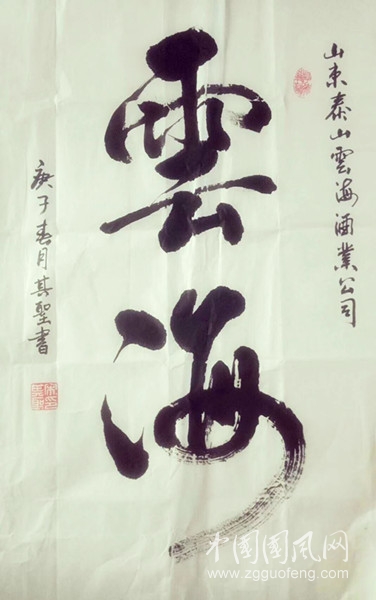 山東泰山雲海酒業公司
雲海
庚子春月其聖書
中国国风网
www.zgguofeng.com